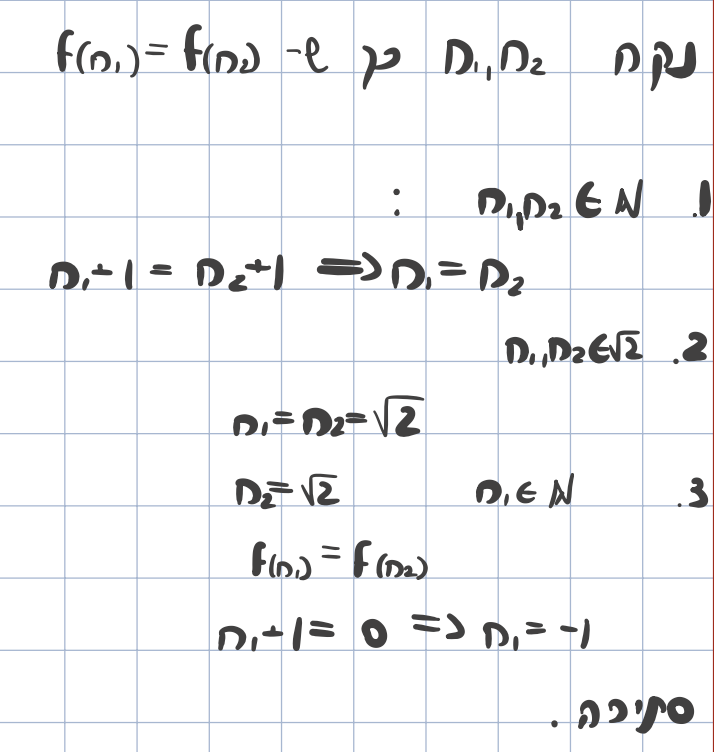 נקח n₁,n₂ כך ש- f(n₁) = f(n₂)
1. n₁,n₂ ∈ ℕ :
n₁+1 = n₂+1 ⟹ n₁ = n₂
2. n₁,n₂ ∈ √2
n₁ = n₂ = √2
3. n₁ ∈ ℕ n₂ = √2
f(n₁) = f(n₂)
n₁+1 = 0 ⟹ n₁ = -1
סתירה.